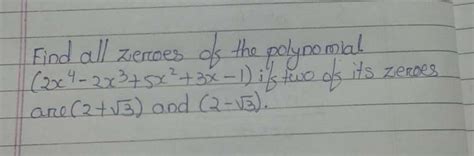 Find all zeroes of the polynomial
(2x⁴-2x³+5x²+3x-1) if two of its zeroes
are (2+√3) and (2-√3).